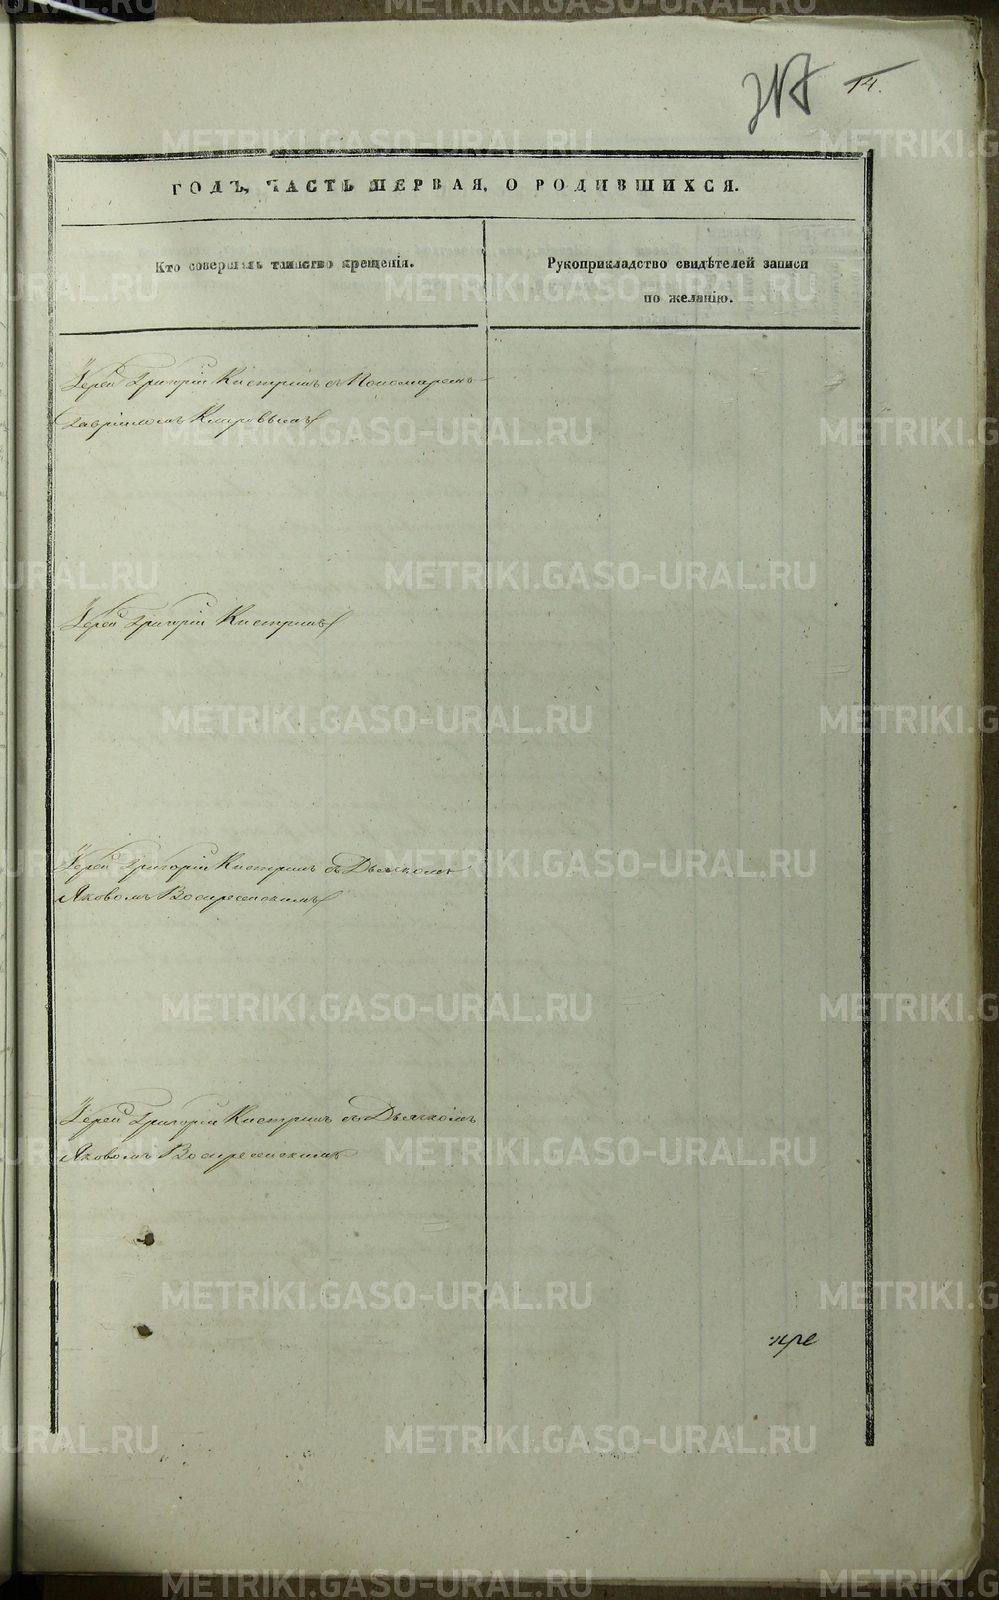 14.
ГОДЪ, ЧАСТЬ ПЕРВАЯ, О РОДИВШИХСЯ.
Кто совершалъ таинство крещенія.
Рукоприкладство свидѣтелей записи
по желанію.
Іерей Григорій Кистринъ съ Пономаремъ
Гавріиломъ
Іерей Григорій Кистринъ
Іерей Григорій Кистринъ съ Дьячкомъ
Яковомъ Воскресенскимъ
Іерей Григорій Кистринъ съ Дьячкомъ
Яковомъ Воскресенскимъ
METRIKI.GASO-URAL.RU